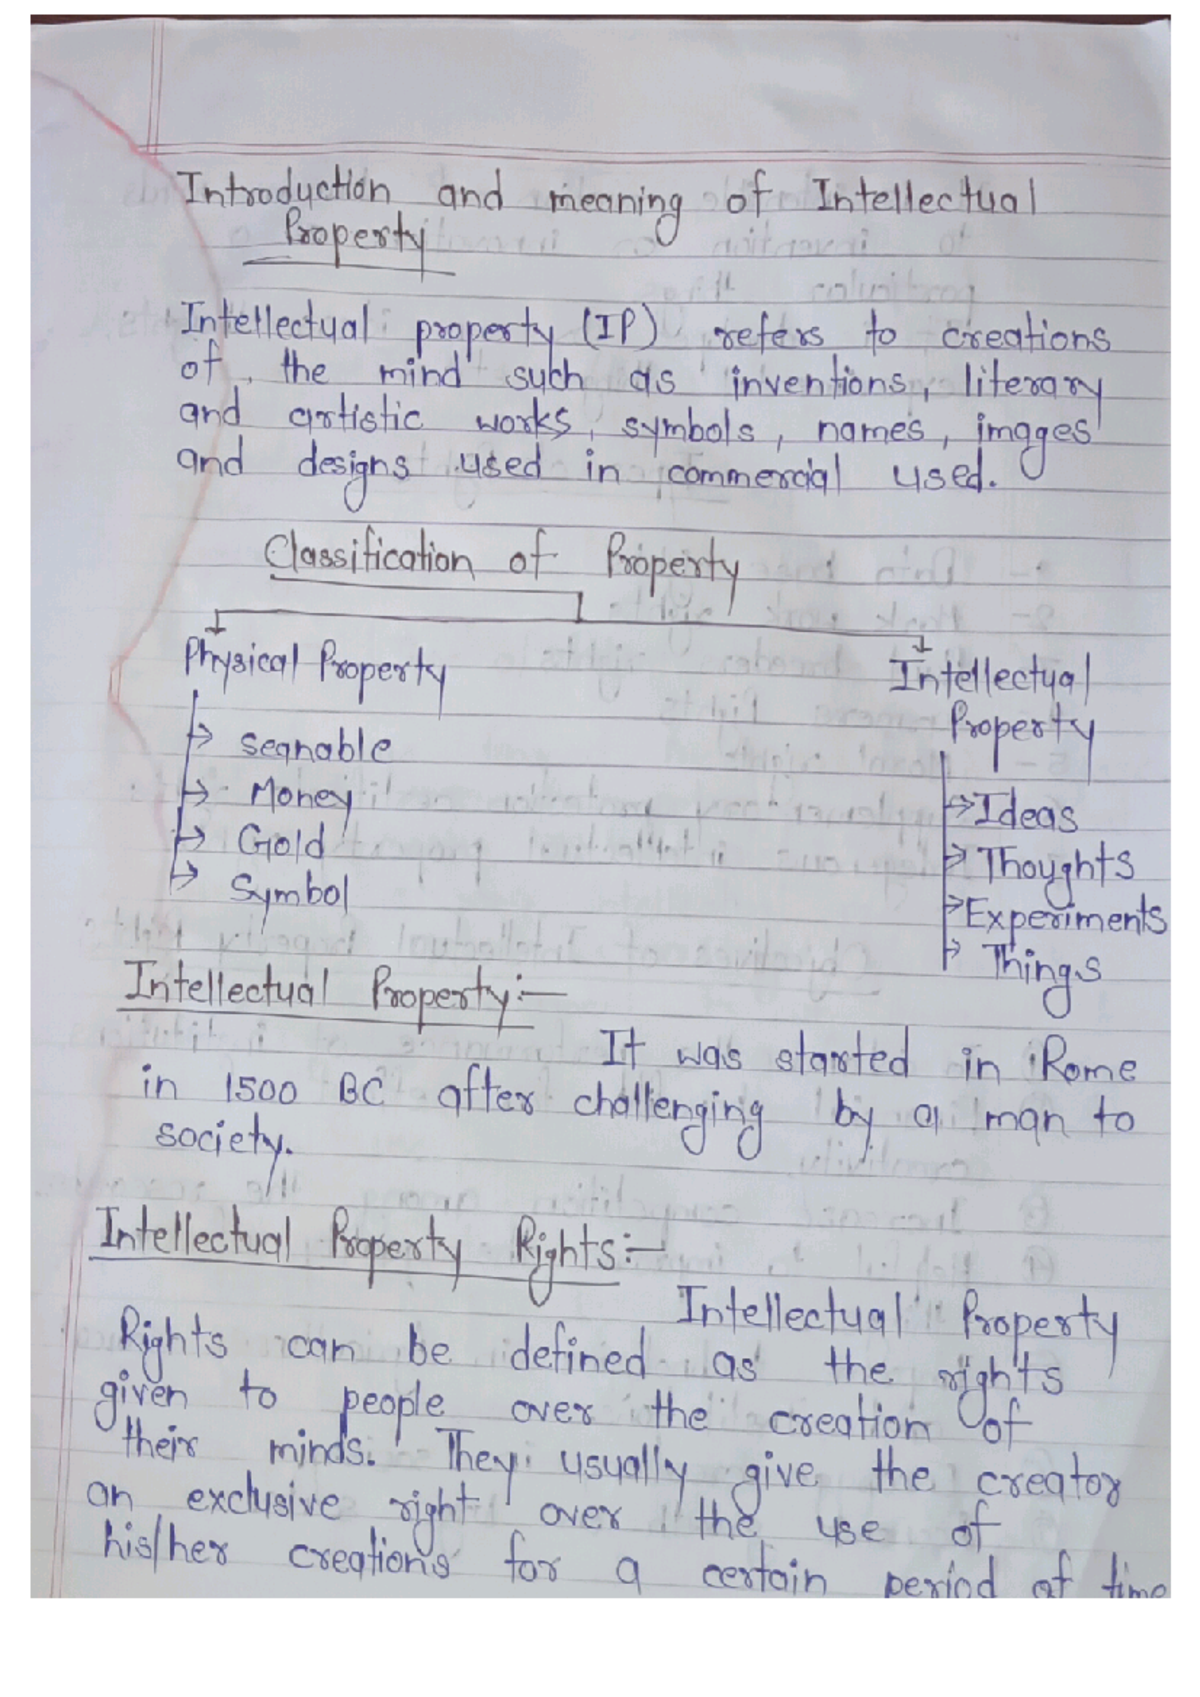 Introduction and meaning of Intellectual
Property
Intellectual property (IP) refers to creations
of the mind such as inventions, literary
and artistic works, symbols, names, images
and designs used in commercial used.
Classification of Property
Physical Property
Intellectual
Property
seanable
Money
Gold
Symbol
Ideas
Thoughts
Experiments
Things
Intellectual Property:-
It was started in Rome
in 1500 BC after challenging by a man to
society.
Intellectual Property Rights:-
Intellectual Property
Rights can be defined as the rights
given to people over the creation of
their minds. They usually give the creator
an exclusive right over the use of
his/her creations for a certain period of time